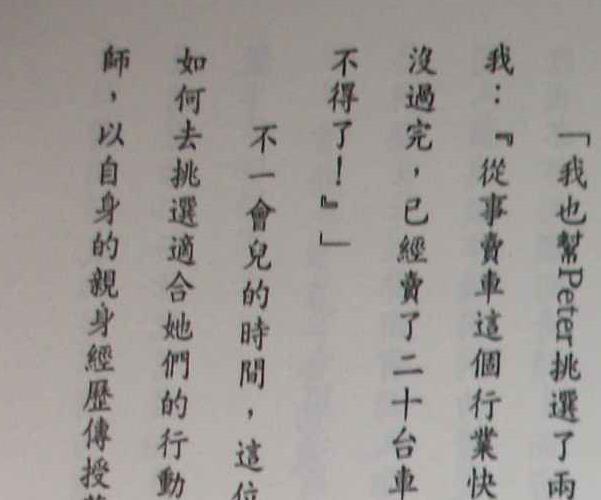 「我也幫Peter挑選了兩
我：『從事賣車這個行業快
沒過完，已經賣了二十台車
不得了！』」
不一會兒的時間，這位
如何去挑選適合她們的行動
師，以自身的親身經歷傳授